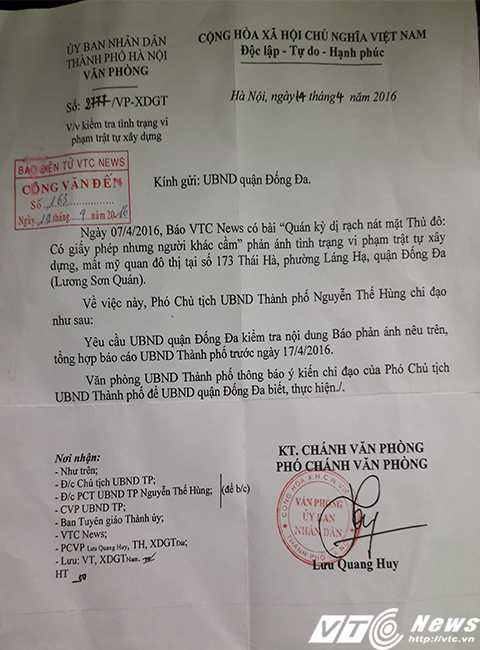 ỦY BAN NHÂN DÂN
THÀNH PHỐ HÀ NỘI
VĂN PHÒNG
CỘNG HÒA XÃ HỘI CHỦ NGHĨA VIỆT NAM
Độc lập - Tự do - Hạnh phúc
Số: 2777/VP-XDGT
Hà Nội, ngày 14 tháng 4 năm 2016
V/v kiểm tra tình trạng vi
phạm trật tự xây dựng
BÁO ĐIỆN TỬ VTC NEWS
CÔNG VĂN ĐẾN
Số 163
Ngày 19 tháng 9 năm 2016
Kính gửi: UBND quận Đống Đa.
Ngày 07/4/2016, Báo VTC News có bài “Quán kỳ dị rạch nát mặt Thủ đô:
Có giấy phép nhưng người khác cầm” phản ánh tình trạng vi phạm trật tự xây
dựng, mất mỹ quan đô thị tại số 173 Thái Hà, phường Láng Hạ, quận Đống Đa
(Lương Sơn Quán).
Về việc này, Phó Chủ tịch UBND Thành phố Nguyễn Thế Hùng chỉ đạo
như sau:
Yêu cầu UBND quận Đống Đa kiểm tra nội dung Báo phản ánh nêu trên,
tổng hợp báo cáo UBND Thành phố trước ngày 17/4/2016.
Văn phòng UBND Thành phố thông báo ý kiến chỉ đạo của Phó Chủ tịch
UBND Thành phố để UBND quận Đống Đa biết, thực hiện./.
Nơi nhận:
- Như trên;
- Đ/c Chủ tịch UBND TP;
- Đ/c PCT UBND TP Nguyễn Thế Hùng; (để b/c)
- CVP UBND TP;
- Ban Tuyên giáo Thành ủy;
- VTC News;
- PCVP Lưu Quang Huy, TH, XDGTDu;
- Lưu: VT, XDGTNam.
HT
KT. CHÁNH VĂN PHÒNG
PHÓ CHÁNH VĂN PHÒNG
VĂN PHÒNG
ỦY BAN
NHÂN DÂN
Lưu Quang Huy
VTC News
http://vtc.vn